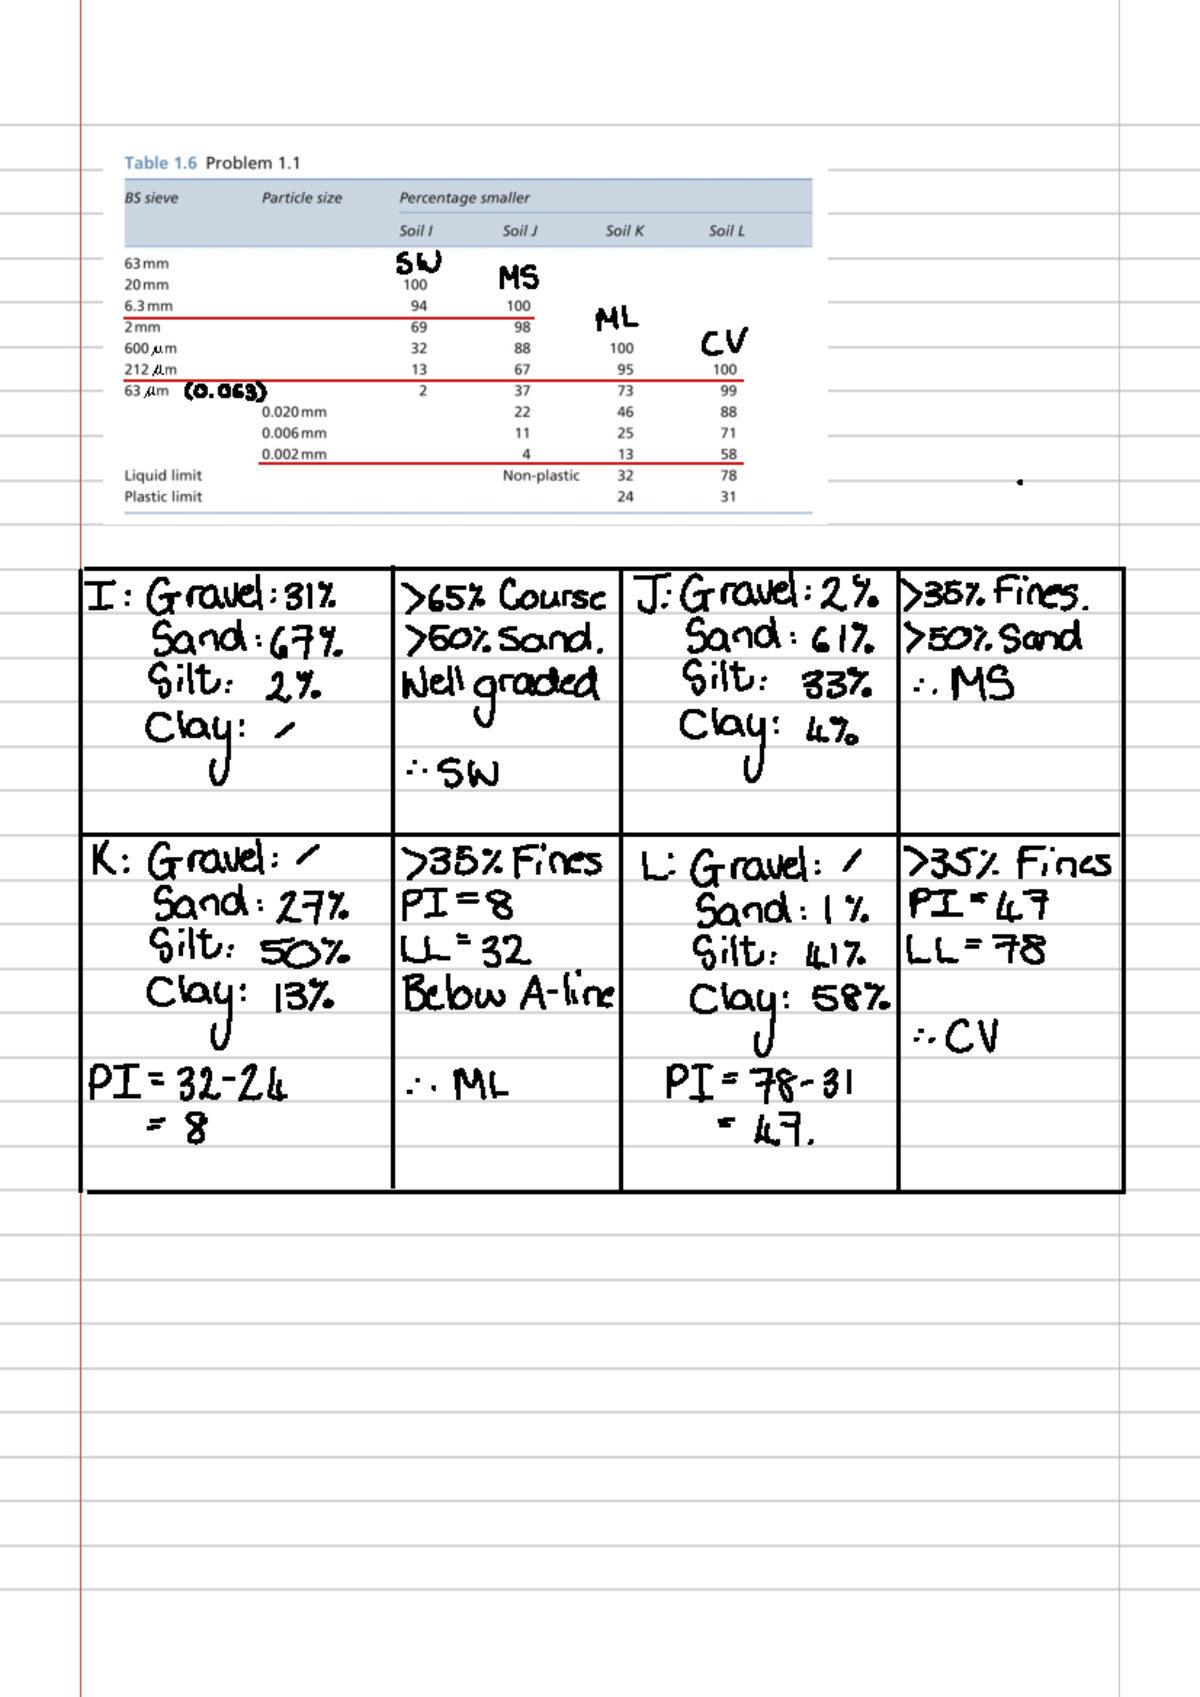 Table 1.6 Problem 1.1
BS sieve Particle size Percentage smaller
Soil I Soil J Soil K Soil L
63 mm SW
20 mm 100 MS
6.3 mm 94 100
2 mm 69 98 ML
600 μm 32 88 100 CV
212 μm 13 67 95 100
63 μm (0.063) 2 37 73 99
0.020 mm 22 46 88
0.006 mm 11 25 71
0.002 mm 4 13 58
Liquid limit Non-plastic 32 78
Plastic limit 24 31
I: Gravel: 31%
Sand: 67%
Silt: 2%
Clay: /
>65% Course
>50% Sand.
Well graded
∴ SW
J: Gravel: 2%
Sand: 61%
Silt: 33%
Clay: 4%
>35% Fines.
>50% Sand
∴ MS
K: Gravel: /
Sand: 27%
Silt: 50%
Clay: 13%
PI = 32-24
= 8
>35% Fines
PI = 8
LL = 32
Below A-line
∴ ML
L: Gravel: /
Sand: 1%
Silt: 41%
Clay: 58%
PI = 78-31
= 47.
>35% Fines
PI = 47
LL = 78
∴ CV